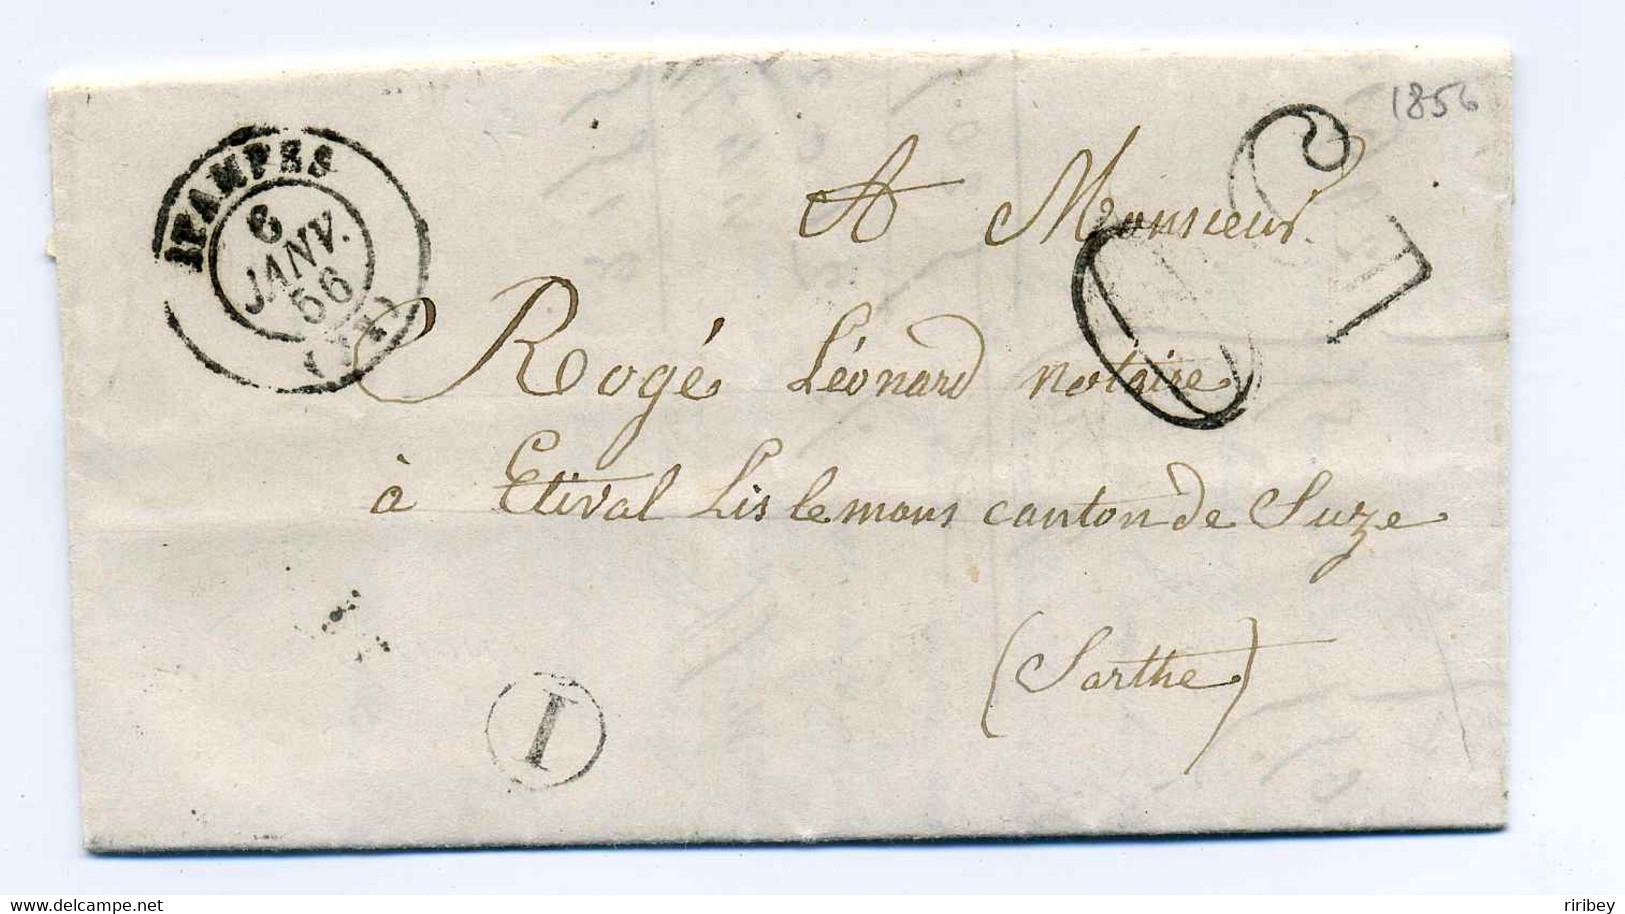 1856
ETAMPES
6
JANV.
56
A Monsieur
Rogé Léonard notaire
à Etival Lis lemans canton de Suze
(Sarthe)
I
delcampe.net
riribey